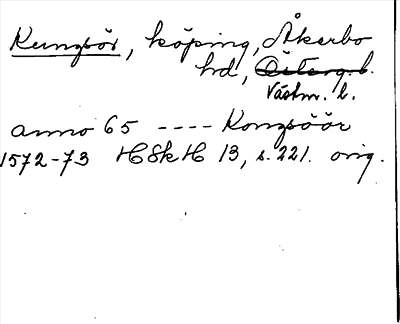 Kungsör, köping, Åkerbo
hd, Österg. l.
Västm. l.
anno 65 ---- Kongsöör
1572-73 HSkH 13, s. 221. orig.